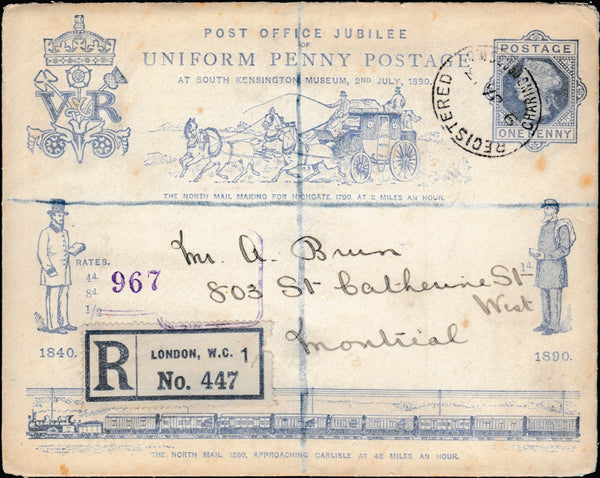 POST OFFICE JUBILEE
OF
UNIFORM PENNY POSTAGE
AT SOUTH KENSINGTON MUSEUM, 2ND JULY, 1890.
V R
POSTAGE
ONE PENNY
REGISTERED
CHARING
9 JA
THE NORTH MAIL MAKING FOR HIGHGATE, 1790, AT 8 MILES AN HOUR.
RATES.
4d.
8d.
1/2
967
1d.
Mr. A. Brun
803 St Catherine St
West
Montreal
1840.
1890.
R
LONDON, W.C. 1
No. 447
THE NORTH MAIL 1890, APPROACHING CARLISLE AT 48 MILES AN HOUR.